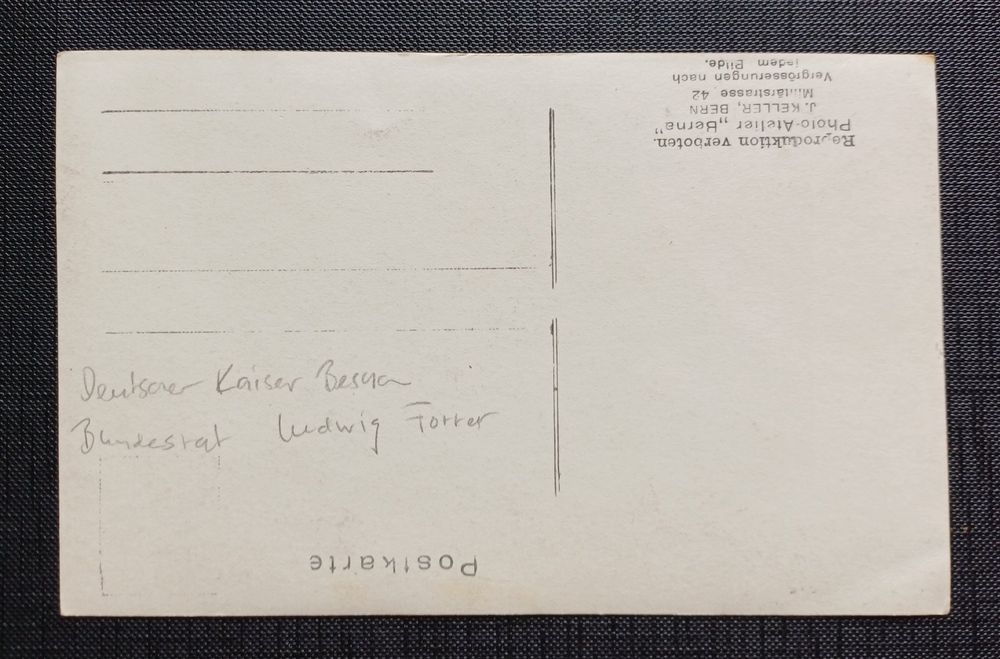 Reproduktion verboten.
Photo-Atelier „Berna"
J. KELLER, BERN
Militärstrasse 42
Vergrösserungen nach
jedem Bilde.
Deutscher Kaiser Besuch
Bundesrat Ludwig Forrer
Postkarte